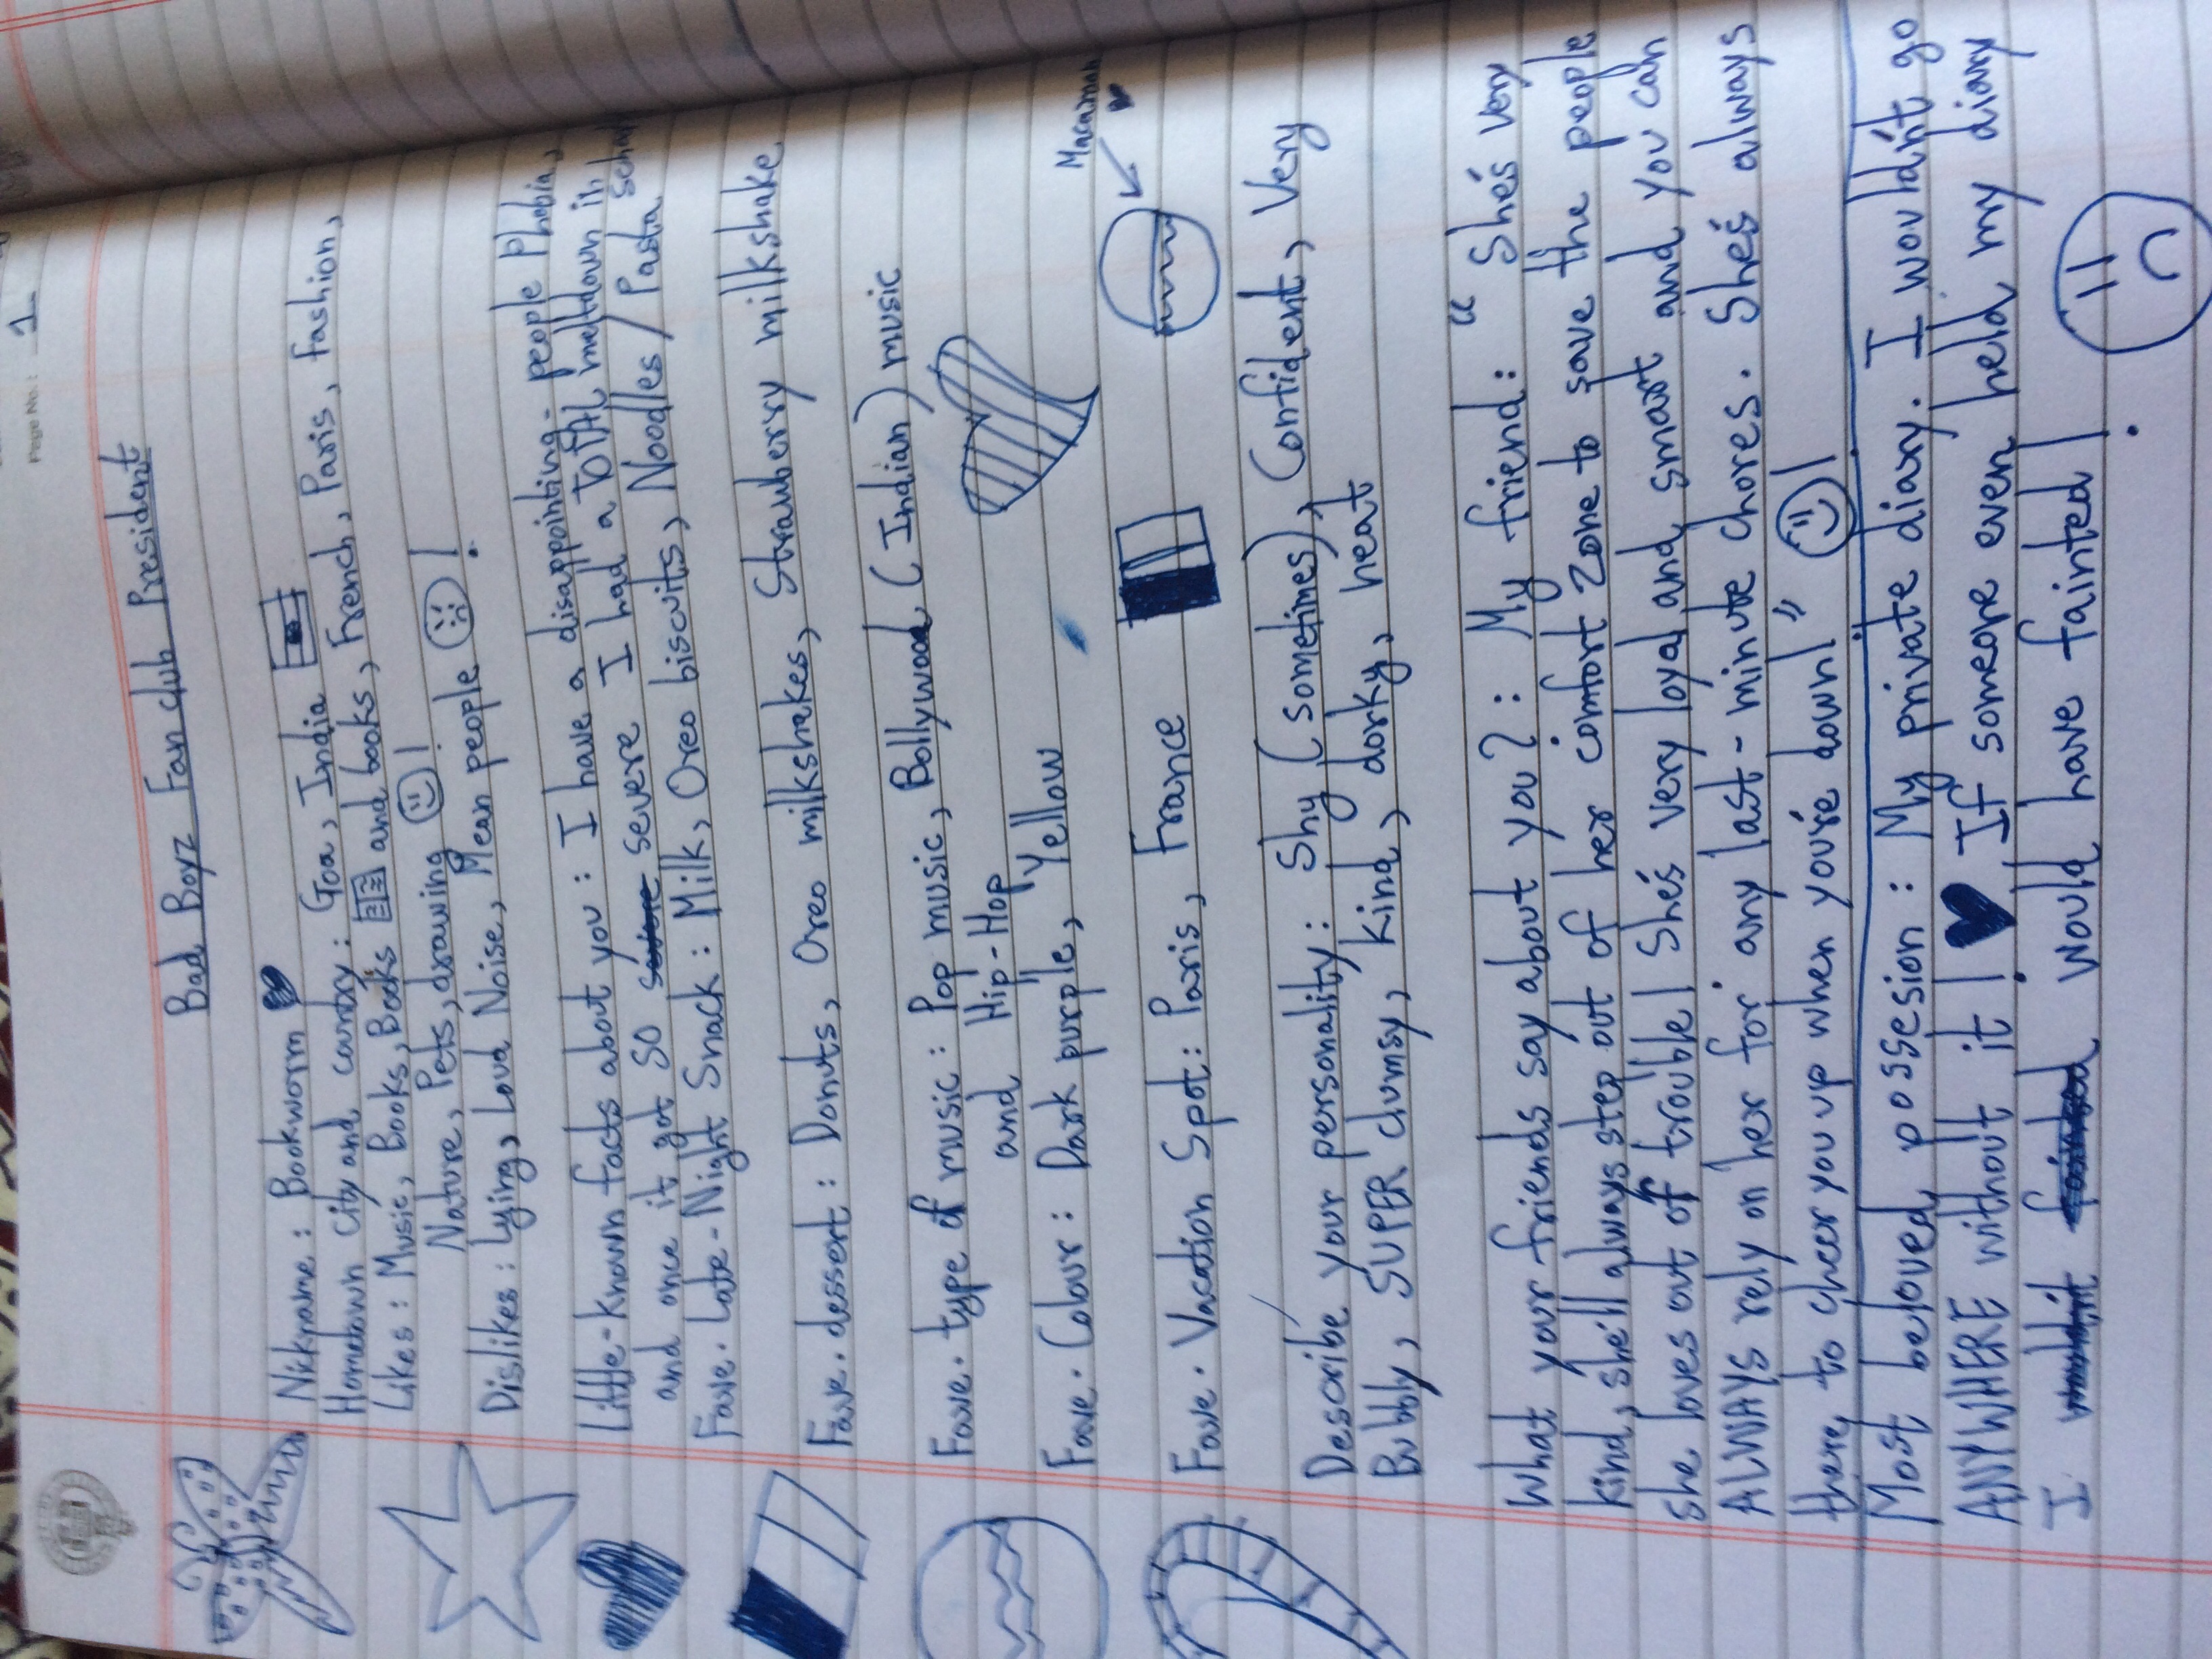 Page No.: 1
Bad Boyz Fan club President
Nickname : Bookworm
Hometown City and country : Goa, India
Likes : Music, Books, Books, Books and books, French, Paris, Fashion,
Nature, Pets, drawing !
Dislikes : Lying, Loud Noise, Mean people !
Little-Known facts about you : I have a disappointing- people Phobia,
and once it got SO severe I had a TOTAL meltdown in school
Fave. Late-Night Snack : Milk, Oreo biscuits, Noodles / Pasta
Fave. dessert : Donuts, Oreo milkshakes, Strawberry milkshake
Fave. type of music : Pop music, Bollywood (Indian) music
and Hip-Hop
Fave. Colour : Dark purple, Yellow
Macaroon
Fave. Vacation Spot : Paris, France
Describe your personality : Shy (sometimes), Confident, Very
Bubbly, SUPER clumsy, kind, dorky, neat
What your friends say about you? : My friend : " She's very
kind, she'll always step out of her comfort zone to save the people
she loves out of trouble! She's very loyal and smart and you can
ALWAYS rely on her for any last-minute chores. She's always
there to cheer you up when you're down! " !
Most beloved possesion : My private diary. I would'nt go
ANYWHERE without it ! If someone even held my diary
I would have fainted !